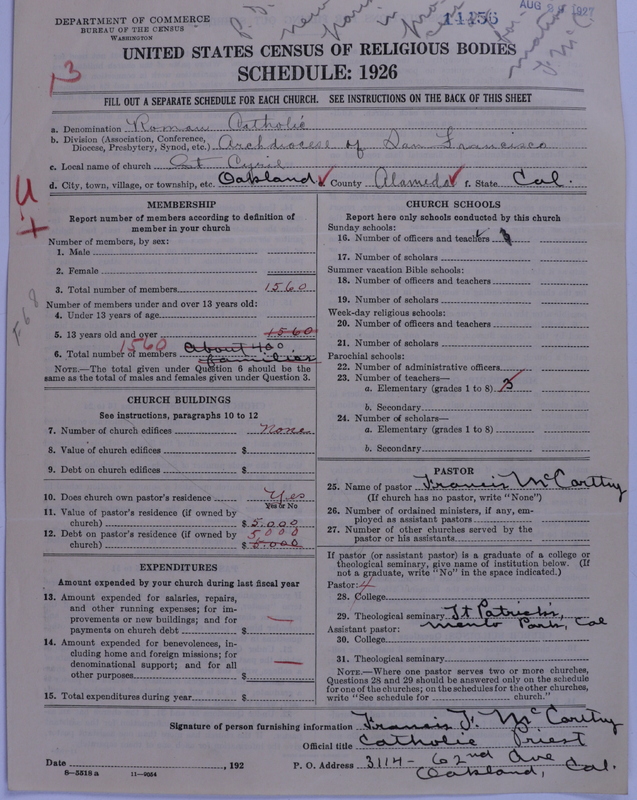 DEPARTMENT OF COMMERCE
BUREAU OF THE CENSUS
WASHINGTON
11156
AUG 1927
UNITED STATES CENSUS OF RELIGIOUS BODIES
SCHEDULE: 1926
FILL OUT A SEPARATE SCHEDULE FOR EACH CHURCH. SEE INSTRUCTIONS ON THE BACK OF THIS SHEET
a. Denomination Roman Catholic
b. Division (Association, Conference, Diocese, Presbytery, Synod, etc.) Archdiocese of San Francisco
c. Local name of church St Cyril
d. City, town, village, or township, etc. Oakland County Alameda f. State Cal.
MEMBERSHIP
Report number of members according to definition of
member in your church
Number of members, by sex:
1. Male
2. Female
3. Total number of members 1560
Number of members under and over 13 years old:
4. Under 13 years of age
5. 13 years old and over 1560
1560
6. Total number of members About 400
families
NOTE.—The total given under Question 6 should be
same as the total of males and females given under Question 3.
CHURCH BUILDINGS
See instructions, paragraphs 10 to 12
7. Number of church edifices None
8. Value of church edifices $
9. Debt on church edifices $
10. Does church own pastor's residence Yes
Yes or No
11. Value of pastor's residence (if owned by
church) $ 5.000
12. Debt on pastor's residence (if owned by 5,000
church) $ 5.000
EXPENDITURES
Amount expended by your church during last fiscal year
13. Amount expended for salaries, repairs,
and other running expenses; for im-
provements or new buildings; and for
payments on church debt $ —
14. Amount expended for benevolences, in-
cluding home and foreign missions; for
denominational support; and for all
other purposes $ —
15. Total expenditures during year $
CHURCH SCHOOLS
Report here only schools conducted by this church
Sunday schools:
16. Number of officers and teachers
17. Number of scholars
Summer vacation Bible schools:
18. Number of officers and teachers
19. Number of scholars
Week-day religious schools:
20. Number of officers and teachers
21. Number of scholars
Parochial schools:
22. Number of administrative officers
23. Number of teachers—
a. Elementary (grades 1 to 8)
b. Secondary
24. Number of scholars—
a. Elementary (grades 1 to 8)
b. Secondary
PASTOR
25. Name of pastor Francis McCarthy
(If church has no pastor, write "None")
26. Number of ordained ministers, if any, em-
ployed as assistant pastors
27. Number of other churches served by the
pastor or his assistants
If pastor (or assistant pastor) is a graduate of a college or
theological seminary, give name of institution below. (If
not a graduate, write "No" in the space indicated.)
Pastor: 4
28. College
29. Theological seminary St Patrick's,
Menlo Park, Cal
Assistant pastor:
30. College
31. Theological seminary
NOTE.—Where one pastor serves two or more churches,
Questions 28 and 29 should be answered only on the schedule
for one of the churches; on the schedules for the other churches,
write "See schedule for church."
Signature of person furnishing information Francis J. McCarthy
Official title Catholic Priest
Date , 192
P. O. Address 3114- 62nd Ave
Oakland, Cal.
8—5518 a 11—9054